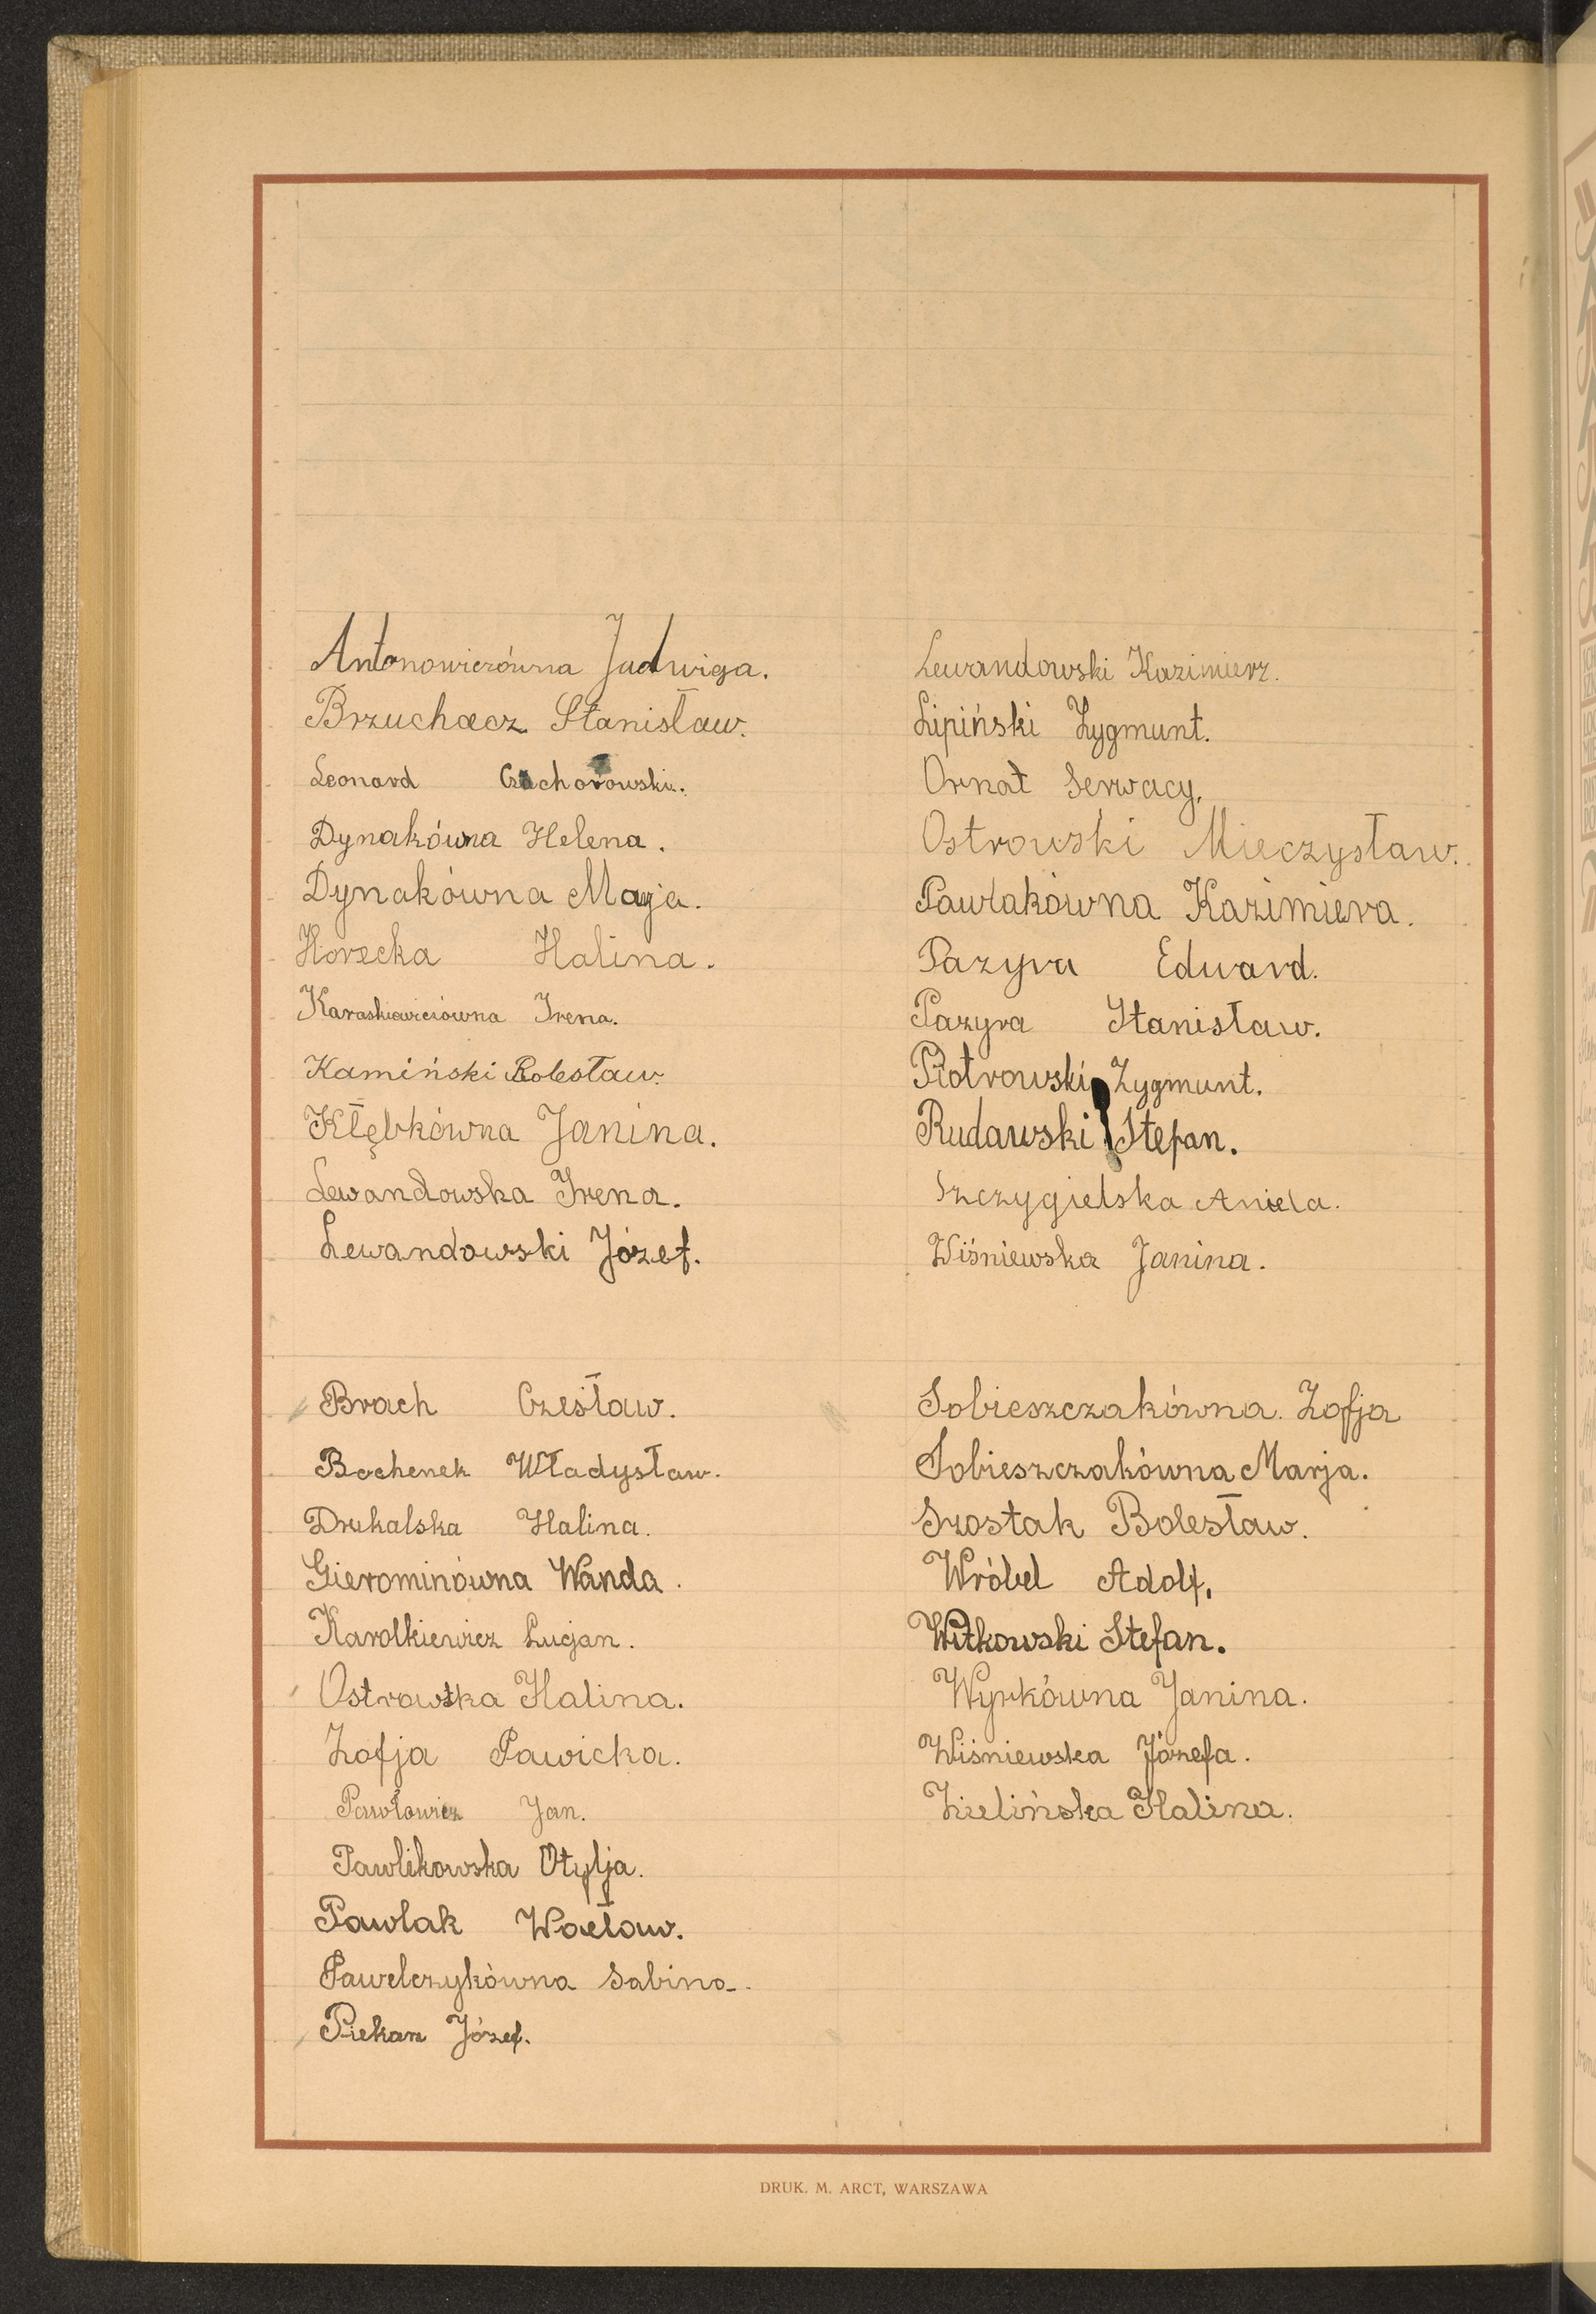 Antonowiczówna Jadwiga.
Brzuchacz Stanisław.
Leonard Czachorowski.
Dynakówna Helena.
Dynakówna Marja.
Horecka Halina.
Karaskiewiczówna Irena.
Kamiński Bolesław.
Kłębkówna Janina.
Lewandowska Irena.
Lewandowski Józef.
Lewandowski Kazimierz.
Lipiński Zygmunt.
Ornat Serwacy.
Ostrowski Mieczysław.
Pawlakówna Kazimiera.
Pazyra Edward.
Pazyra Stanisław.
Piotrowski Zygmunt.
Rudawski Stefan.
Szczygielska Aniela.
Wiśniewska Janina.
Brach Czesław.
Bochenek Władysław.
Druhalska Halina.
Gierominówna Wanda.
Karolkiewicz Lucjan.
Ostrowska Halina.
Zofja Pawicka.
Pawłowicz Jan.
Pawlikowska Otylja.
Pawlak Wacław.
Pawelczykówna Sabina.
Piekarz Józef.
Sobieszczakówna. Zofja
Sobieszczakówna Marja.
Szostak Bolesław.
Wróbel Adolf.
Witkowski Stefan.
Wyrkówna Janina.
Wiśniewska Józefa.
Zielińska Halina.
DRUK. M. ARCT, WARSZAWA